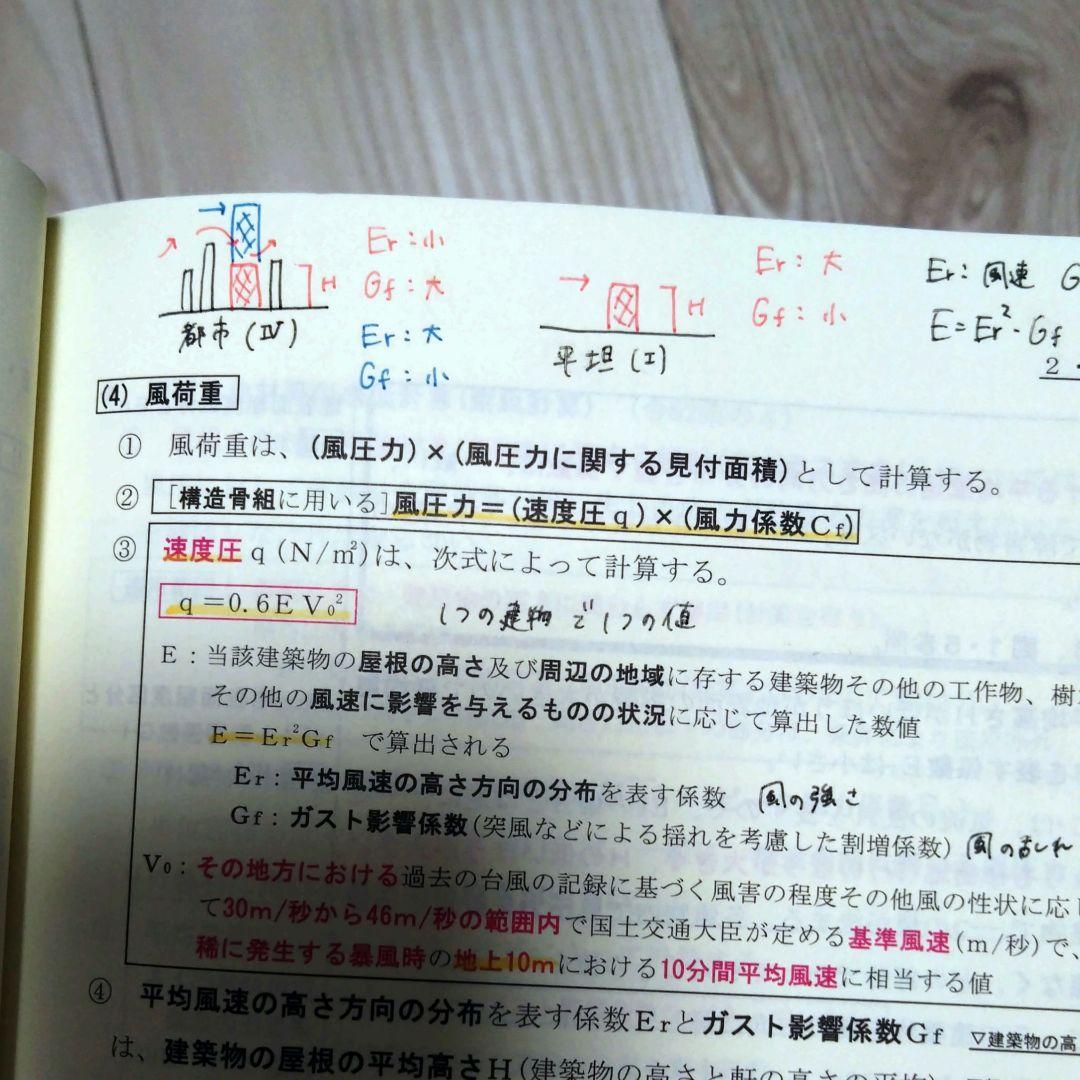 Er:小
Gf:大
Er:大
Gf:小
H
都市(Ⅳ)
H
平坦(Ⅰ)
Er:大
Gf:小
Er:風速 G
E=Er²・Gf
2
(4) 風荷重
① 風荷重は、(風圧力)×(風圧力に関する見付面積)として計算する。
② [構造骨組に用いる]風圧力=(速度圧q)×(風力係数Cf)
③ 速度圧q(N/㎡)は、次式によって計算する。
q=0.6EV₀²
1つの建物で1つの値
E:当該建築物の屋根の高さ及び周辺の地域に存する建築物その他の工作物、樹
その他の風速に影響を与えるものの状況に応じて算出した数値
E=Er²Gf で算出される
Er:平均風速の高さ方向の分布を表す係数 風の強さ
Gf:ガスト影響係数(突風などによる揺れを考慮した割増係数) 風の乱れ
V₀:その地方における過去の台風の記録に基づく風害の程度その他風の性状に応じ
て30m/秒から46m/秒の範囲内で国土交通大臣が定める基準風速(m/秒)で、
稀に発生する暴風時の地上10mにおける10分間平均風速に相当する値
④ 平均風速の高さ方向の分布を表す係数Erとガスト影響係数Gf ▽建築物の高
は、建築物の屋根の平均高さH(建築物の高さと軒の高さの平均)